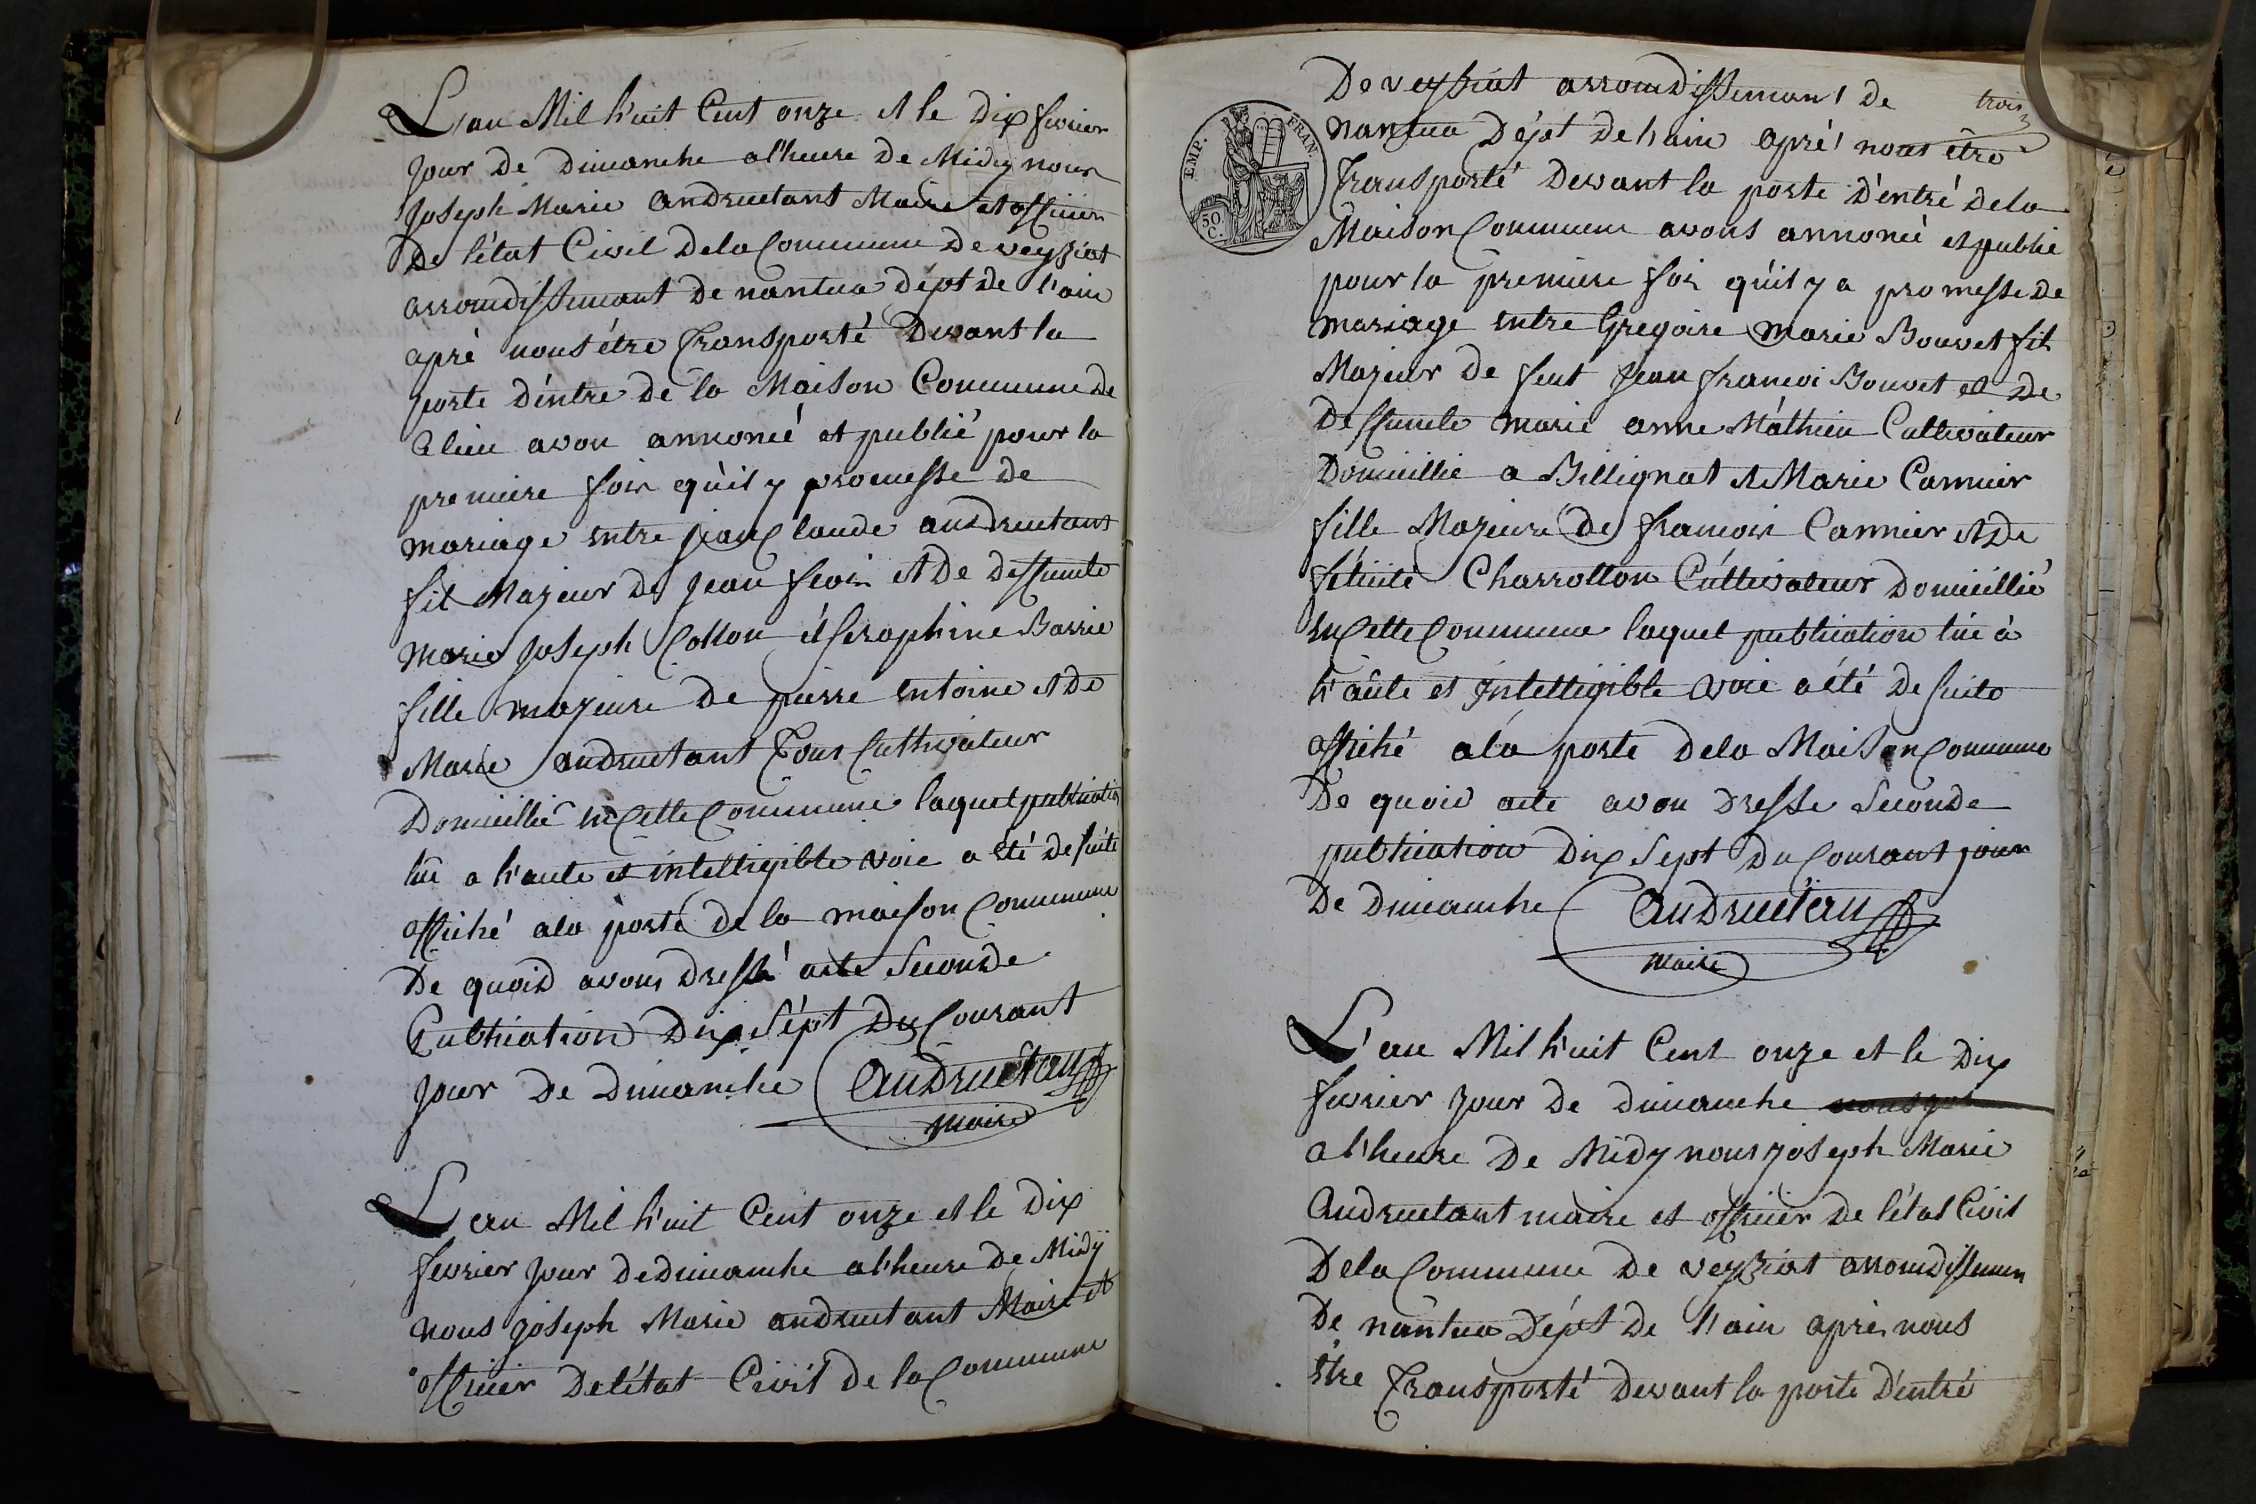 L'an Mil huit Cent onze et le Dix fevrier
Jour de Dimanche a l'heure de Midy nous
Joseph Marie andruetant Maire et officier
De l'état Civil de la Commune de veyziat
arrondissement de nantua dépt de l'ain
apré nous étre Transporté Devant la
porte d'éntre de la Maison Commune de
Ce lieu avon annoncé et publié pour la
premiere fois qu'il y promesse de
mariage entre jean Claude andruetant
fil Majeur de Jean et de deffunte
Marie Joseph Collon et Seraphine Barrie
fille majeure de pierre entoine et de
Marie andruetant Tous Cultivateur
Domicillié en Cette Commune laquel publication
lue a h'aute et intelligible voie a été de suite
affiché a la porte de la maison Commune
De quoid avons dressé acte Seconde
Publication Dix Sépt du Courant
jour de Dimanche Andruétan
maire
L'an Mil h'uit Cent onze et le Dix
fevrier jour de dimanche a l'heure de Midÿ
nous joseph Marie andruetant Maire et
officier De l'état Civil de la Commune
De veyziat arrondissement de
trois
nantua Dépt De l'ain apré nous être
EMP. FRAN.
50 C.
Transporté Devant la porte d'éntré de la
Maison Commune avons annoncé et publié
pour la premiere fois qu'il y a promesse de
mariage entre Gregoire Marie Bouvet fil
Majeur de feut Jean francoi Bouvet et De
Deffunte Marie anne Mathieu Cultivateur
Domicillié a Billignat et Marie Carmier
fille Majeure de francois Carmier et De
félicité Charrollon Cultivateur Domicillié
en Cette Commune laquel publication lue à
h'aûte et intelligible voie a été de suite
affiché a la porte de la Maison Commune
De quoid acte avon dresse Seconde
publication Dix Sept du Courant jour
De dimanche Andruétan
maire
L'an Mil h'uit Cent onze et le Dix
fevrier Jour de dimanche
a l'heure De Midy nous joseph Marie
andruetant maire et officier De l'état Civil
De la Commune De veyziat arrondissemen
De nantua Dépt de l'ain aprés nous
être Transporté devant la porte D'entré